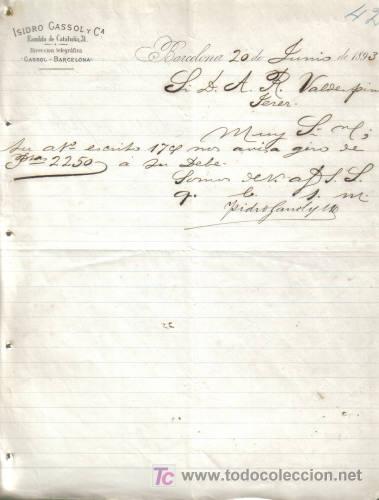 ISIDRO GASSOL Y Cª
Rambla de Cataluña, 31.
Dirección telegráfica
GASSOL - BARCELONA
42
Barcelona 20 de Junio de 1893
Sr. D. A. R. Valdespino
Jerez
Muy Sr. mº
Su atº escrito 17 nos avisa giro de
Pta 2250 á su Debe.
Somos de V. S. S.
q. b. s. m.
Isidro Gassol y Cª
TC
todocoleccion.net
http://www.todocoleccion.net